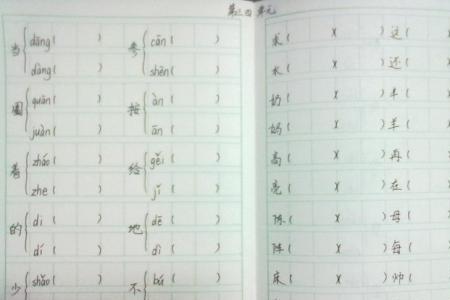 第三四单元
当 dāng ( ) 参 cān ( )
dàng ( ) shēn ( )
圈 quān ( ) 按 àn ( )
juàn ( ) ān ( )
着 zháo ( ) 给 gěi ( )
zhe ( ) jǐ ( )
的 dì ( ) 地 dē ( )
dí ( ) dì ( )
少 shǎo ( ) 不 bú ( )
求 ( ) ( ) 这 (
( ) ( ) 还 (
奶 ( ) ( ) 丰 (
妈 ( ) ( ) 羊 (
高 ( ) ( ) 再 (
亮 ( ) ( ) 在 (
陈 ( ) ( ) 母 (
阵 ( ) ( ) 每 (
床 ( ) ( ) 帅 (